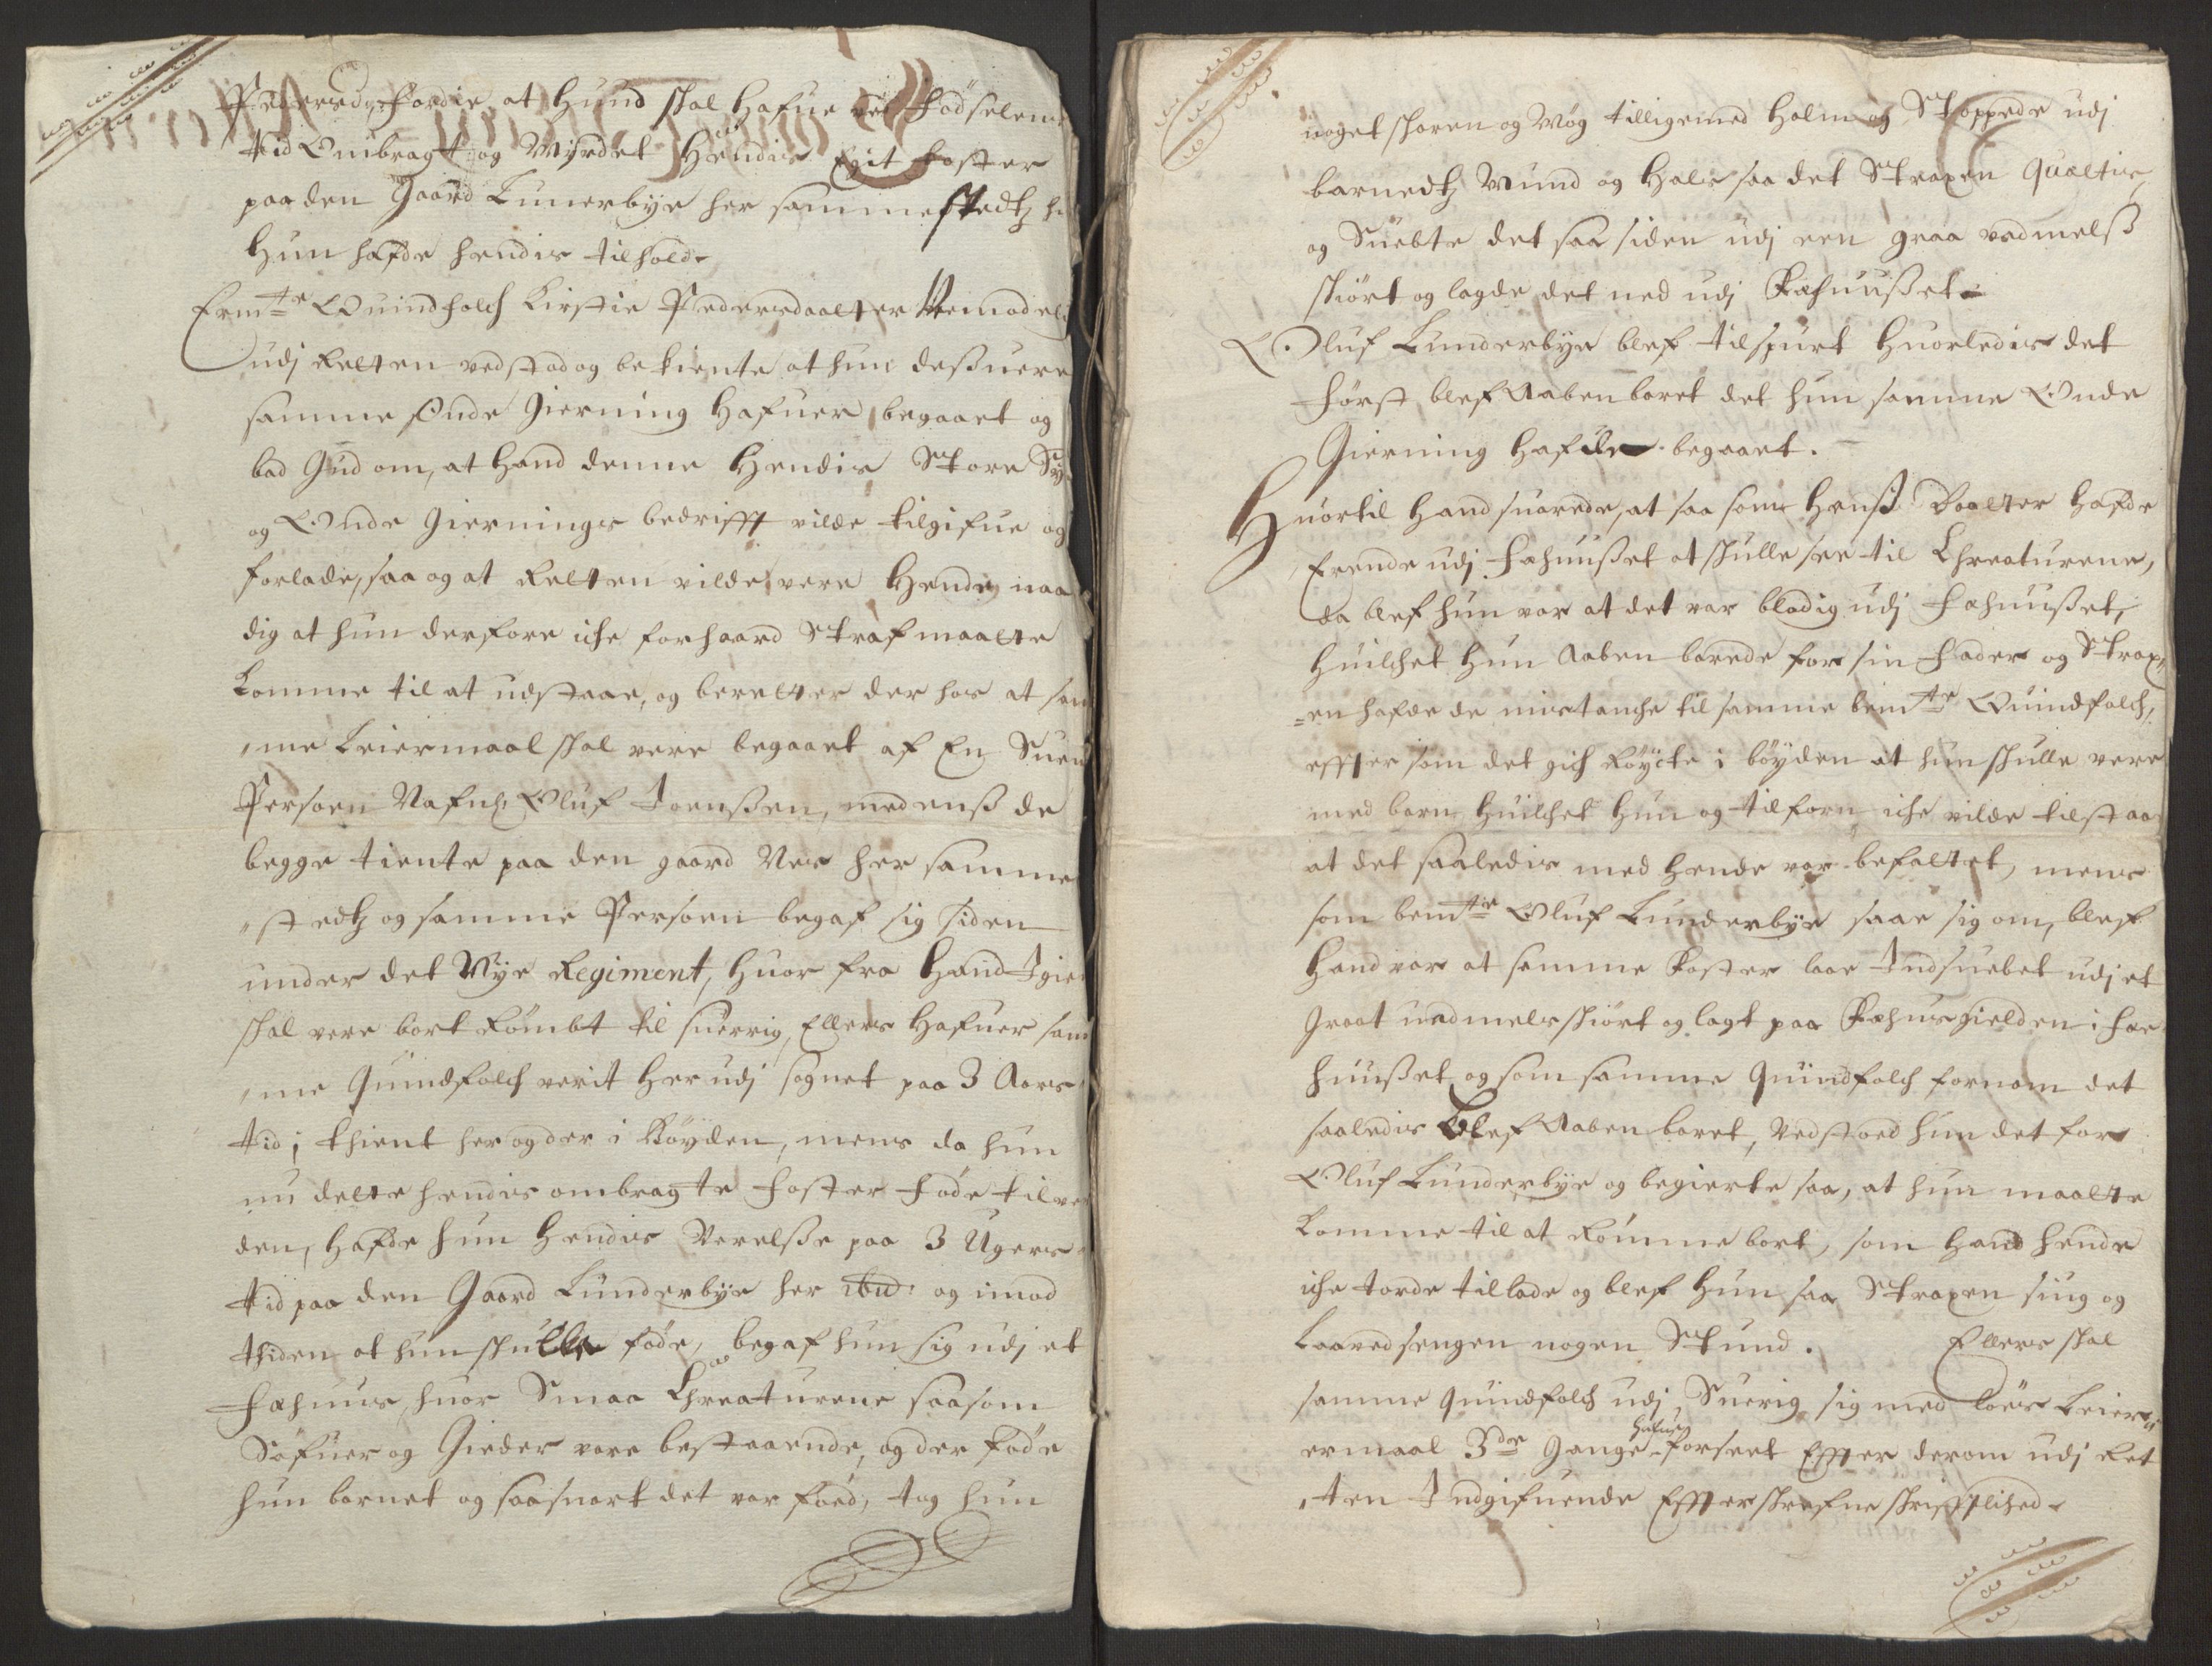 Pedersd: fordie at hund skal hafue ved fødselens
tid Ombragt og Myrdet hendis Egit foster
paa den Gaard Lunerbye her sammestedtz
hun hafde hendis tilhold.
Erm:te Quindfolch Kirstie Pedersdaatter
udj Retten vedstod og bekiente at hun desuere
samme Onde Gierning hafuer begaaet og
bad Gud om, at hand denne hendis Store
og Onde Giernings bedrifft vilde tilgifue og
forlade, saa og at Retten vilde vere hende naa
dig at hun derfore iche forhaard Straf maatte
komme til at udstaae, og beretter der hos at sam
me Leiermaal skal vere begaaet af En
Persoen Nafnl: Oluf Joenßen, medenß de
begge tiente paa den gaard Nes her samme
stedtz og samme Persoen begaf sig siden
under det Nye Regiment, huor fra hand Igien
skal vere bort Rømbt til suerrig, Ellers hafuer sam
me Quindfolch verit her udj sognet paa 3 Aars
tid i thient her og der i Bøyden, mens da hun
nu dette hendis ombragte foster føde til
den, hafde hun hendis Verelße paa 3 Ugers
tid paa den Gaard Lunderbye her ibid: og imod
thiden at hun skulle føde, begaf hun sig udj et
fæhuus, huor Smaa Chreaturene saasom
Søfuer og Gieder vare bestaaende, og der føde
hun barnet og saasnart det var fød, tog hun
noget skoren og Møg tilligemed halm og Stoppede udj
barnedtz Mund og hals saa det Straxen Qualtis,
og Suøbte det saa siden udj een graa vadmelß
skiørt og lagde det ned udj Fæhuußet
Oluf Lunderbye blef tilspurt huorledis det
først blef Aabenbaret det hun samme Onde
Gierning hafde begaaet.
Huortil hand suarede, at saa som hanß Daatter hafde
Erende udj fæhuußet at skulle see til Chreaturene,
da blef hun var at det var blodig udj fæhuußet,
huilchet hun Aabenbarede for sin fader og Strax,
en hafde de mistanche til samme bem:te Quindfolch,
effter som det gich Røyckte i bøyden at hun skulle vere
med barn huilchet hun og tilforn iche vilde tilstaa
at det saaledis med hende var befattet, mens
som bem:te Oluf Lunderbye saae sig om, blef
hand var at samme foster laae Indsuøbet udj et
Graat uadmelsskiørt og lagt paa Fæhusgielden i fæ
huußet og som samme Quindfolch fornam det
saaledis blef Aabenbaret, Vedstoed hun det for
Oluf Lunderbye og begierte saa, at hun maatte
komme til at Rømme bort, som hand hende
iche torde tillade og blef hun saa Straxen siug og
laa ved sengen nogen Stund. Ellers skal
samme Quindfolch udj Suerig sig med løes Leier
ermaal 3de Gange hafue forseet Effter derom udj Ret
ten Indgifuende Effterskrefne skrifftlihed